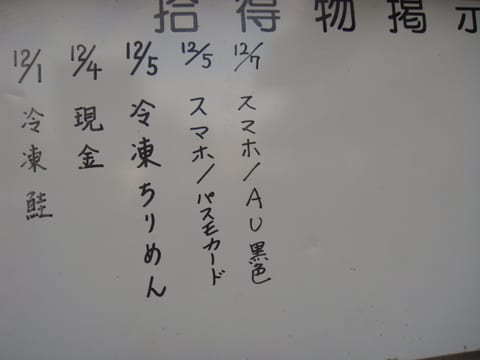 拾得物掲示
12/7 スマホ/AU黒色
12/5 スマホ/パスモカード
12/5 冷凍ちりめん
12/4 現金
12/1 冷凍鮭